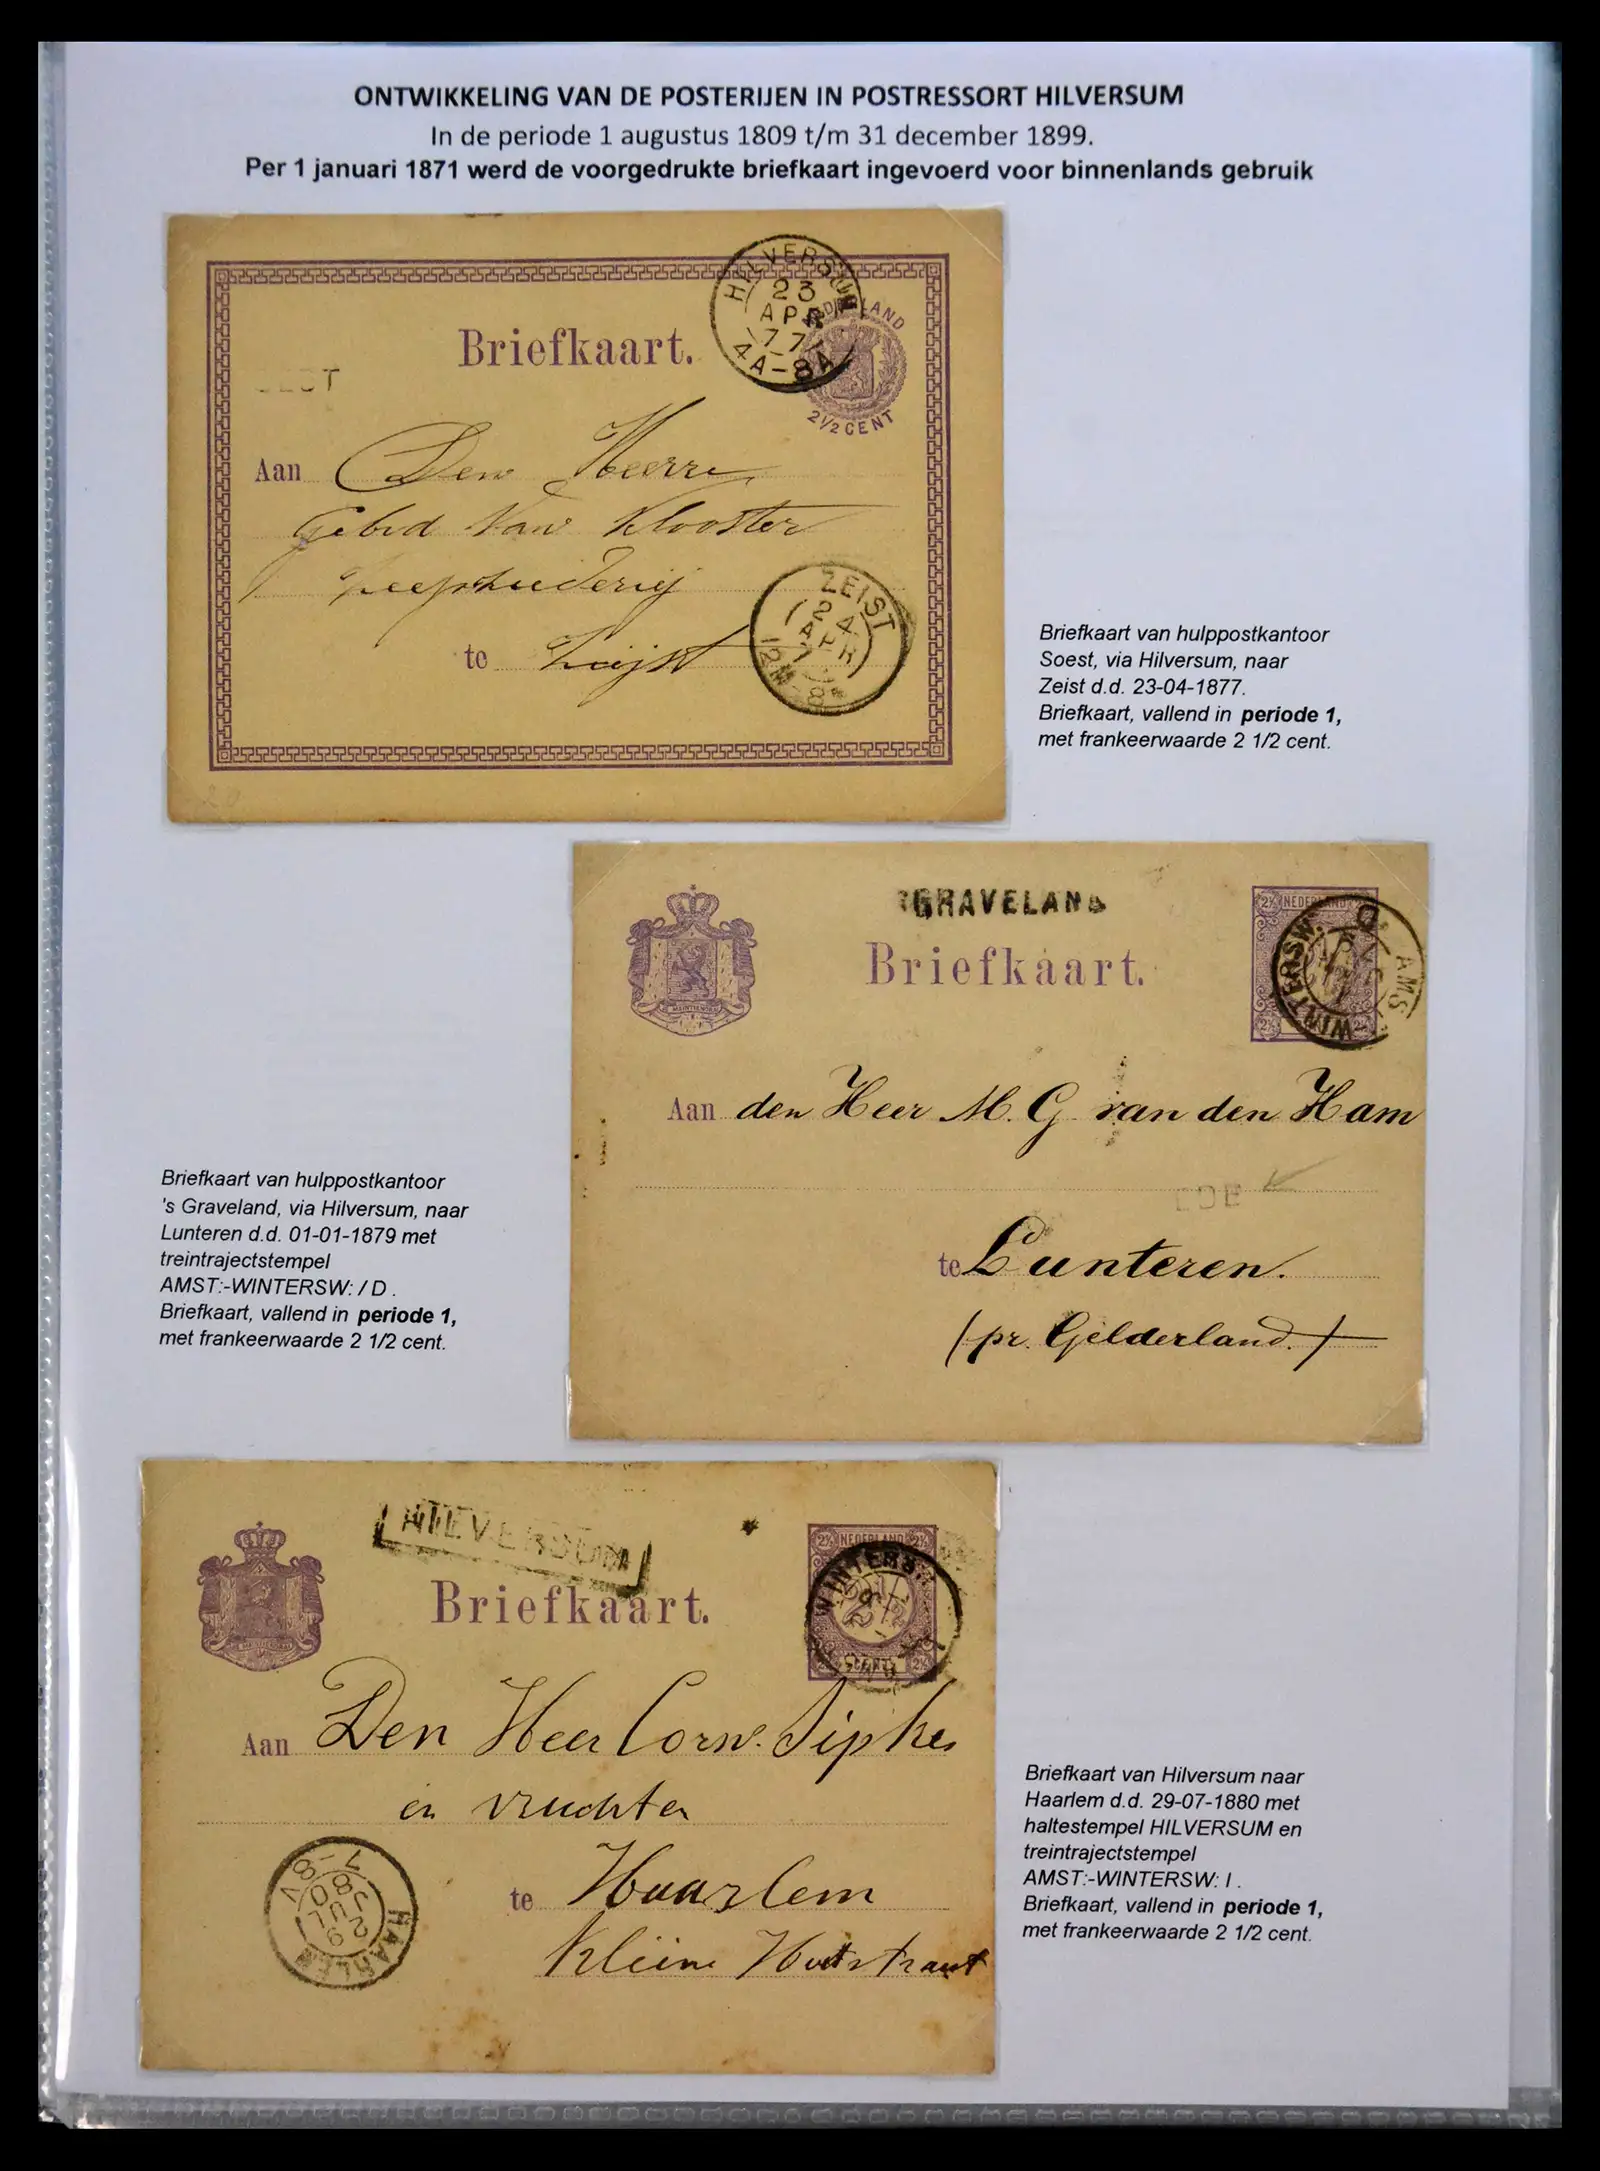 ONTWIKKELING VAN DE POSTERIJEN IN POSTRESSORT HILVERSUM
In de periode 1 augustus 1809 t/m 31 december 1899.
Per 1 januari 1871 werd de voorgedrukte briefkaart ingevoerd voor binnenlands gebruik
HILVERSUM
23
APR
77
4A-8A
NEDERLAND
2 1/2 CENT
Briefkaart.
Aan Den Heere
Gebrd Van Klooster
te Zeijst
ZEIST
24
APR
12M-8
Briefkaart van hulppostkantoor
Soest, via Hilversum, naar
Zeist d.d. 23-04-1877.
Briefkaart, vallend in periode 1,
met frankeerwaarde 2 1/2 cent.
GRAVELAND
NEDERLAND
WINTERSW. AMS
D
Briefkaart.
Aan den Heer M. G. van den Ham
te Lunteren.
(pr. Gelderland.)
Briefkaart van hulppostkantoor
's Graveland, via Hilversum, naar
Lunteren d.d. 01-01-1879 met
treintrajectstempel
AMST:-WINTERSW: / D .
Briefkaart, vallend in periode 1,
met frankeerwaarde 2 1/2 cent.
HILVERSUM
NEDERLAND
WINTERS
CENT
Briefkaart.
Aan Den Heer Corns. Sipkes
en vruchten
te Haarlem
Kleine Houtstraat
HAARLEM
Briefkaart van Hilversum naar
Haarlem d.d. 29-07-1880 met
haltestempel HILVERSUM en
treintrajectstempel
AMST:-WINTERSW: I .
Briefkaart, vallend in periode 1,
met frankeerwaarde 2 1/2 cent.